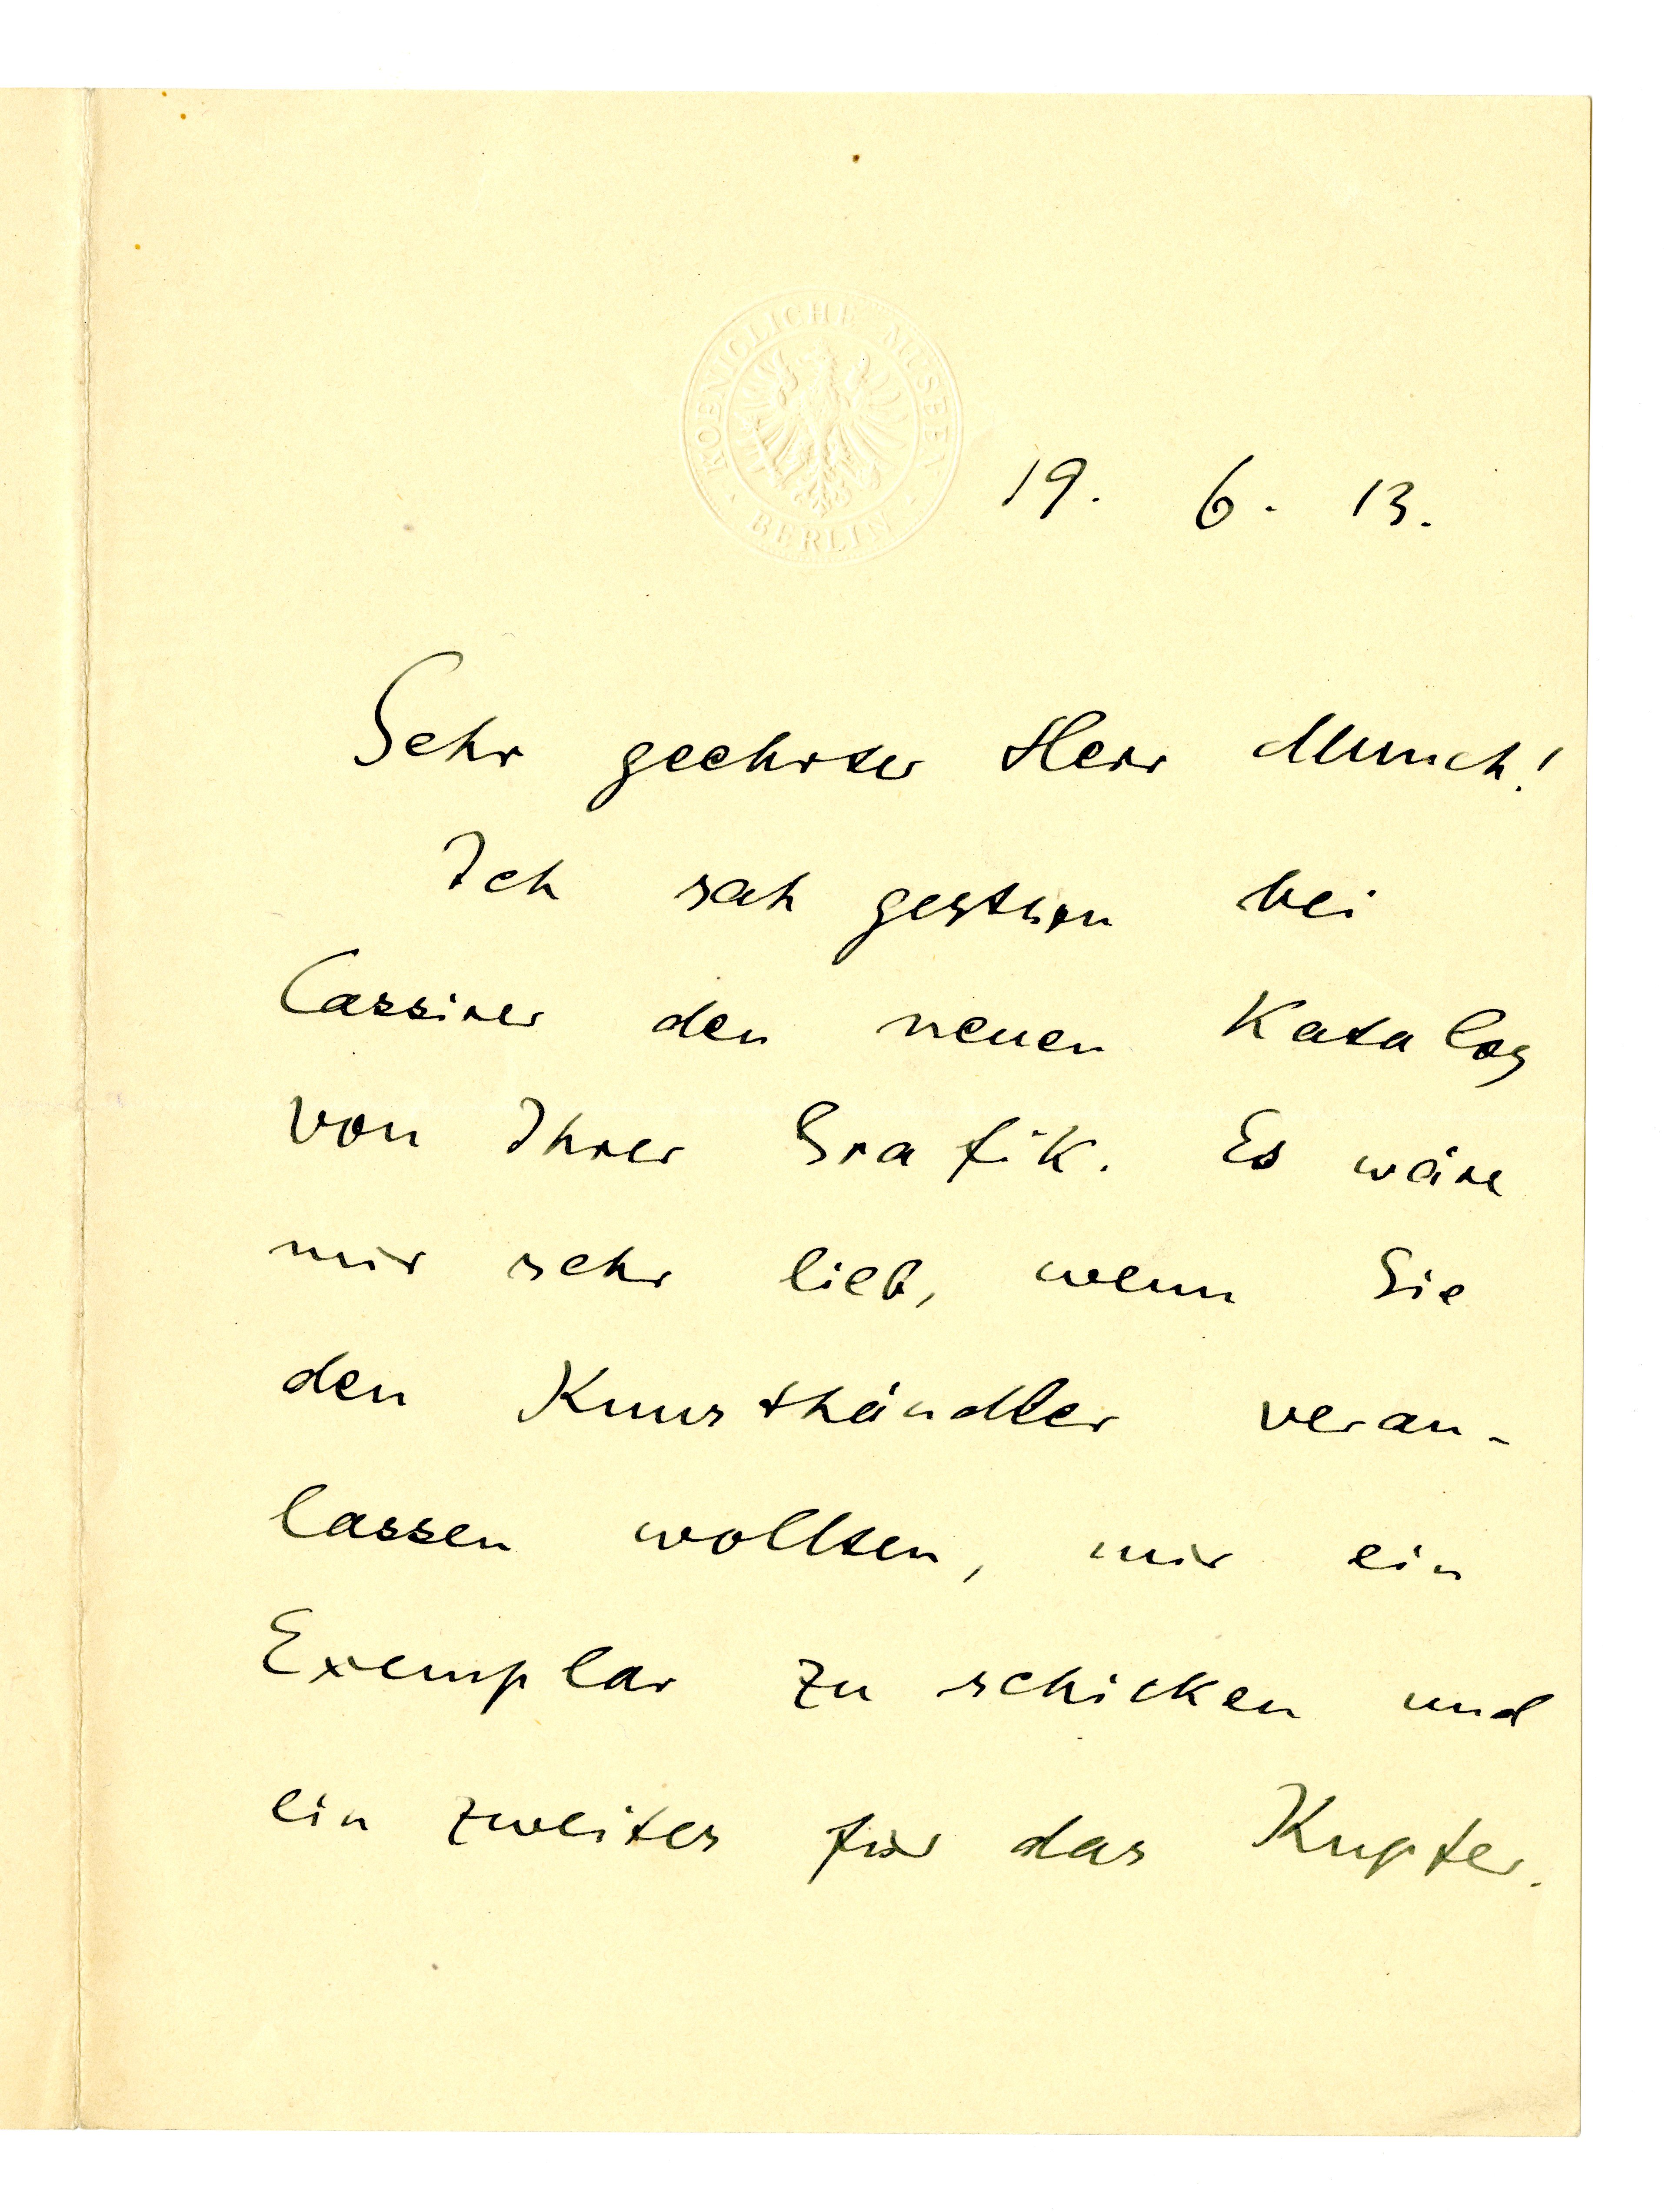 KOENIGLICHE MUSEEN
BERLIN
19. 6. 13.
Sehr geehrter Herr Munch!
Ich sah gestern bei
Cassirer den neuen Katalog
von Ihrer Grafik. Es wäre
mir sehr lieb, wenn Sie
den Kunsthändler veran-
lassen wollten, mir ein
Exemplar zu schicken und
ein zweites für das Kupfer-